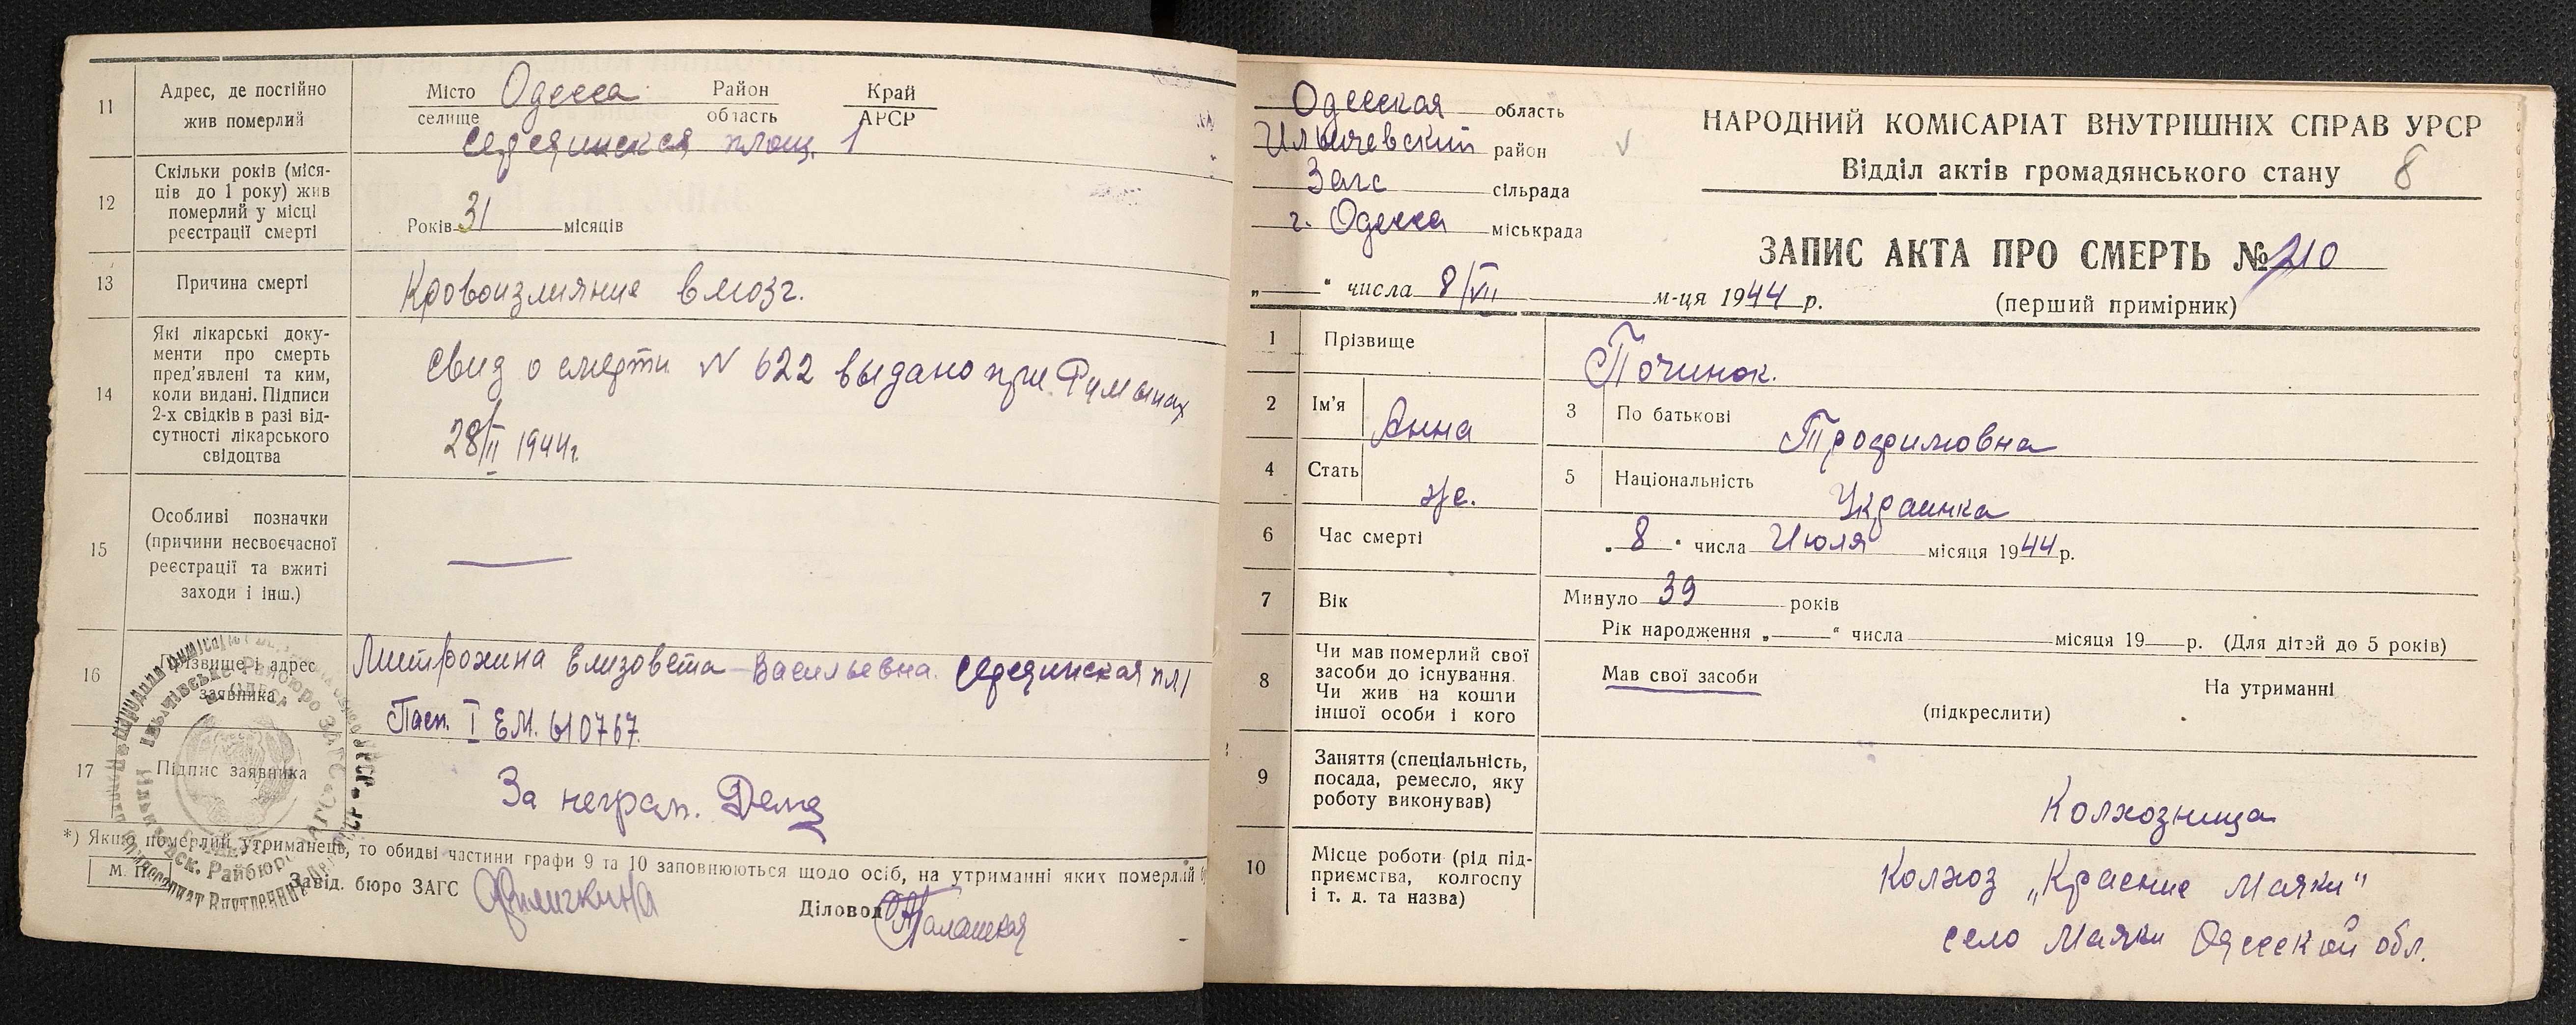 11
Адрес, де постійно
жив померлий
Місто
селище
Одесса
Район
область
Край
АРСР
Серединская площ. 1
12
Скільки років (міся-
ців до 1 року) жив
померлий у місці
реєстрації смерті
Років 31 місяців
13
Причина смерті
Кровоизлияние в мозг.
14
Які лікарські доку-
менти про смерть
пред'явлені та ким,
коли видані. Підписи
2-х свідків в разі від-
сутності лікарського
свідоцтва
Свид о смерти N 622 выдано при Румынах
28/II 1944г.
15
Особливі позначки
(причини несвоєчасної
реєстрації та вжиті
заходи і інш.)
16
Прізвище і адрес
заявника
Митрохина Елизовета Васильевна. Серединская пл 1
Пасп. I ЕМ. 610767
17
Підпис заявника
За неграм.
*) Якщо померлий утриманець, то обидві частини графи 9 та 10 заповнюються щодо осіб, на утриманні яких померлий
М. П.
Завід. бюро ЗАГС
Діловод
Одесская область
Ильичевский район
Загс сільрада
г. Одесса міськрада
„ “ числа 8/VII м-ця 1944 р.
НАРОДНИЙ КОМІСАРІАТ ВНУТРІШНІХ СПРАВ УРСР
Відділ актів громадянського стану
8
ЗАПИС АКТА ПРО СМЕРТЬ № 210
(перший примірник)
1
Прізвище
Починок.
2
Ім'я
Анна
3
По батькові
Трофимовна
4
Стать
же.
5
Національність
Украинка
6
Час смерті
„8“ числа Июля місяця 1944 р.
7
Вік
Минуло 39 років
Рік народження „ “ числа місяця 19 р. (Для дітей до 5 років)
8
Чи мав померлий свої
засоби до існування.
Чи жив на кошти
іншої особи і кого
Мав свої засоби
На утриманні
(підкреслити)
9
Заняття (спеціальність,
посада, ремесло, яку
роботу виконував)
Колхозница
10
Місце роботи (рід під-
приємства, колгоспу
і т. д. та назва)
Колхоз „Красние Маяки"
село Маяки Одесской обл.